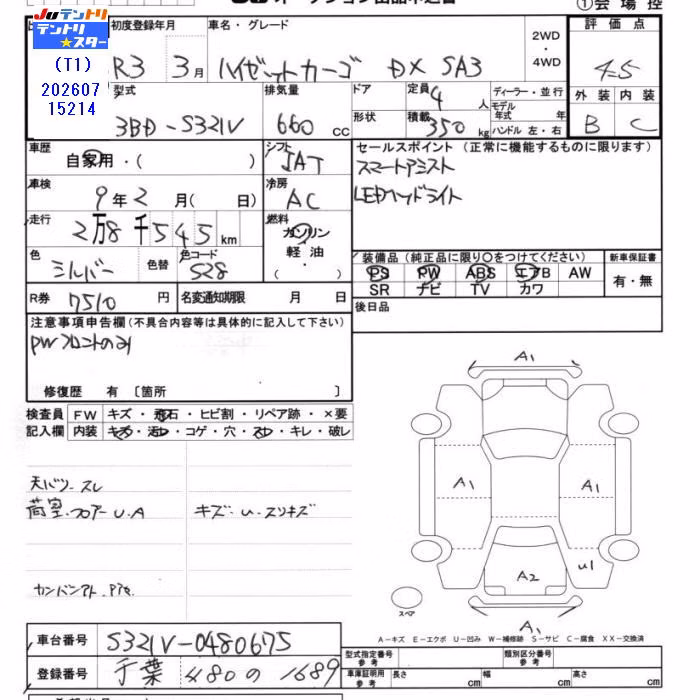 ① 会場控
Juテントリ
テントリ★スター
(T1)
202607
15214
初度登録年月
R3 3月
車名・グレード
ハイゼットカーゴ DX SA3
2WD・4WD
評価点
4.5
外装 内装
B C
型式
3BD-S321V
排気量
660 cc
ドア
形状
定員 4人
積載 350 kg
ディーラー・並行
モデル年式 年
ハンドル 左・右
車歴
自家用・( )
シフト
IAT
車検
9年2月( 日)
冷房
AC
走行
2万8千545km
燃料
ガソリン
軽油
( )
色
シルバー
色替
色コード
S28
R券 7510円
名変通知期限 月 日
セールスポイント (正常に機能するものに限ります)
スマートアシスト
LEDヘッドライト
装備品 (純正品に限り○をつけてください)
PS PW ABS エアB AW
SR ナビ TV カワ
新車保証書
有・無
後日品
注意事項申告欄 (不具合内容等は具体的に記入して下さい)
PWフロントのみ
修復歴 有 〔箇所 〕
検査員記入欄
FW キズ・飛石・ヒビ割・リペア跡・×要
内装 キズ・汚レ・コゲ・穴・スレ・キレ・破レ
天バリ・スレ
荷室・フロアーU.A
キズ・U・スリキズ
カンバンアト・
A1
A1
A1
A2
U1
A1
スペア
A-キズ E-エクボ U-凹み W-補修跡 S-サビ C-腐食 XX-交換済
車台番号
S321V-0480675
登録番号
千葉 480 の 1689
型式指定番号 参考
類別区分番号 参考
車庫証明用 参考
長さ cm
幅 cm
高さ cm